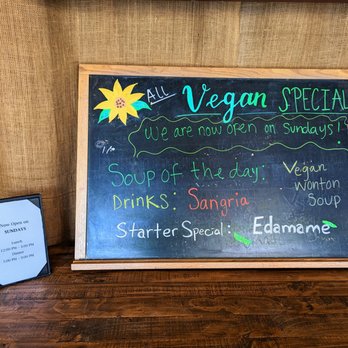 ALL Vegan SPECIAL
We are now open on Sundays!
Soup of the day: Vegan
Wonton
Soup
Drinks: Sangria
Starter Special: Edamame
Now Open on
SUNDAYS
Lunch
Dinner